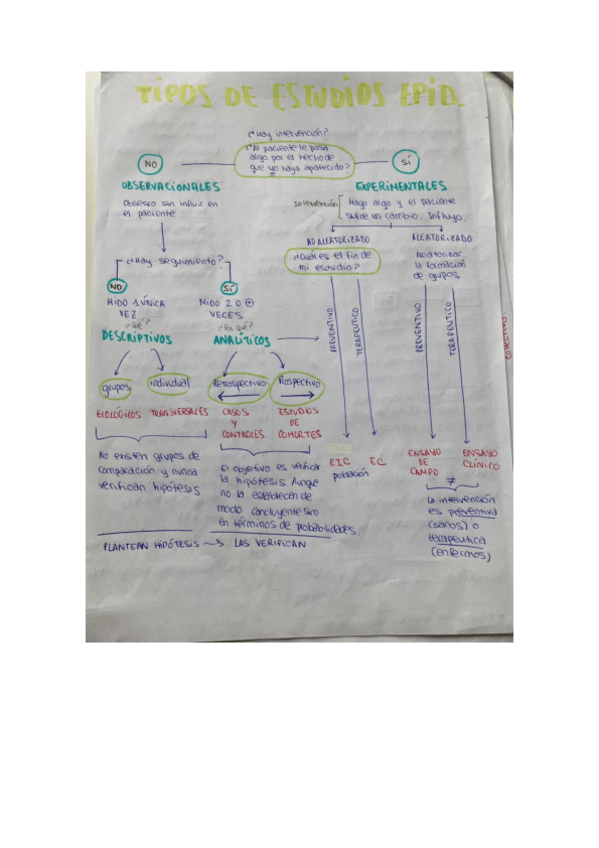 TIPOS DE ESTUDIOS EPID.
¿Hay intervención?
¿Al paciente le pasa
algo por el hecho de
que yo haya aparecido?
NO
SÍ
OBSERVACIONALES
Observo sin influir en
en el paciente
EXPERIMENTALES
Intervención
Hago algo y el paciente
sufre un cambio. Influyo.
¿Hay seguimiento?
NO
SÍ
MIDO 1 ÚNICA
VEZ
¿Qué?
DESCRIPTIVOS
MIDO 2 O ⊕
VECES
¿Por qué?
ANALÍTICOS
grupos
individual
Retrospectivo
Prospectivo
TRANSVERSALES
CASOS
Y
CONTROLES
ESTUDIOS
DE
COHORTES
No existen grupos de
comparación y nunca
verifican hipótesis
El objetivo es verificar
la hipótesis. Aunque
no la establecen de
modo concluyente sino
en términos de probabilidades.
PLANTEAN HIPÓTESIS → LAS VERIFICAN
NO ALEATORIZADO
¿Cuál es el fin de
mi estudio?
PREVENTIVO
TERAPEUTICO
EIC
población
EC
ALEATORIZADO
la formación
de grupos.
PREVENTIVO
TERAPEUTICO
ENSAYO
DE
CAMPO
ENSAYO
CLÍNICO
≠
La intervención
es preventiva
(sanos) o
terapeutica
(enfermos)